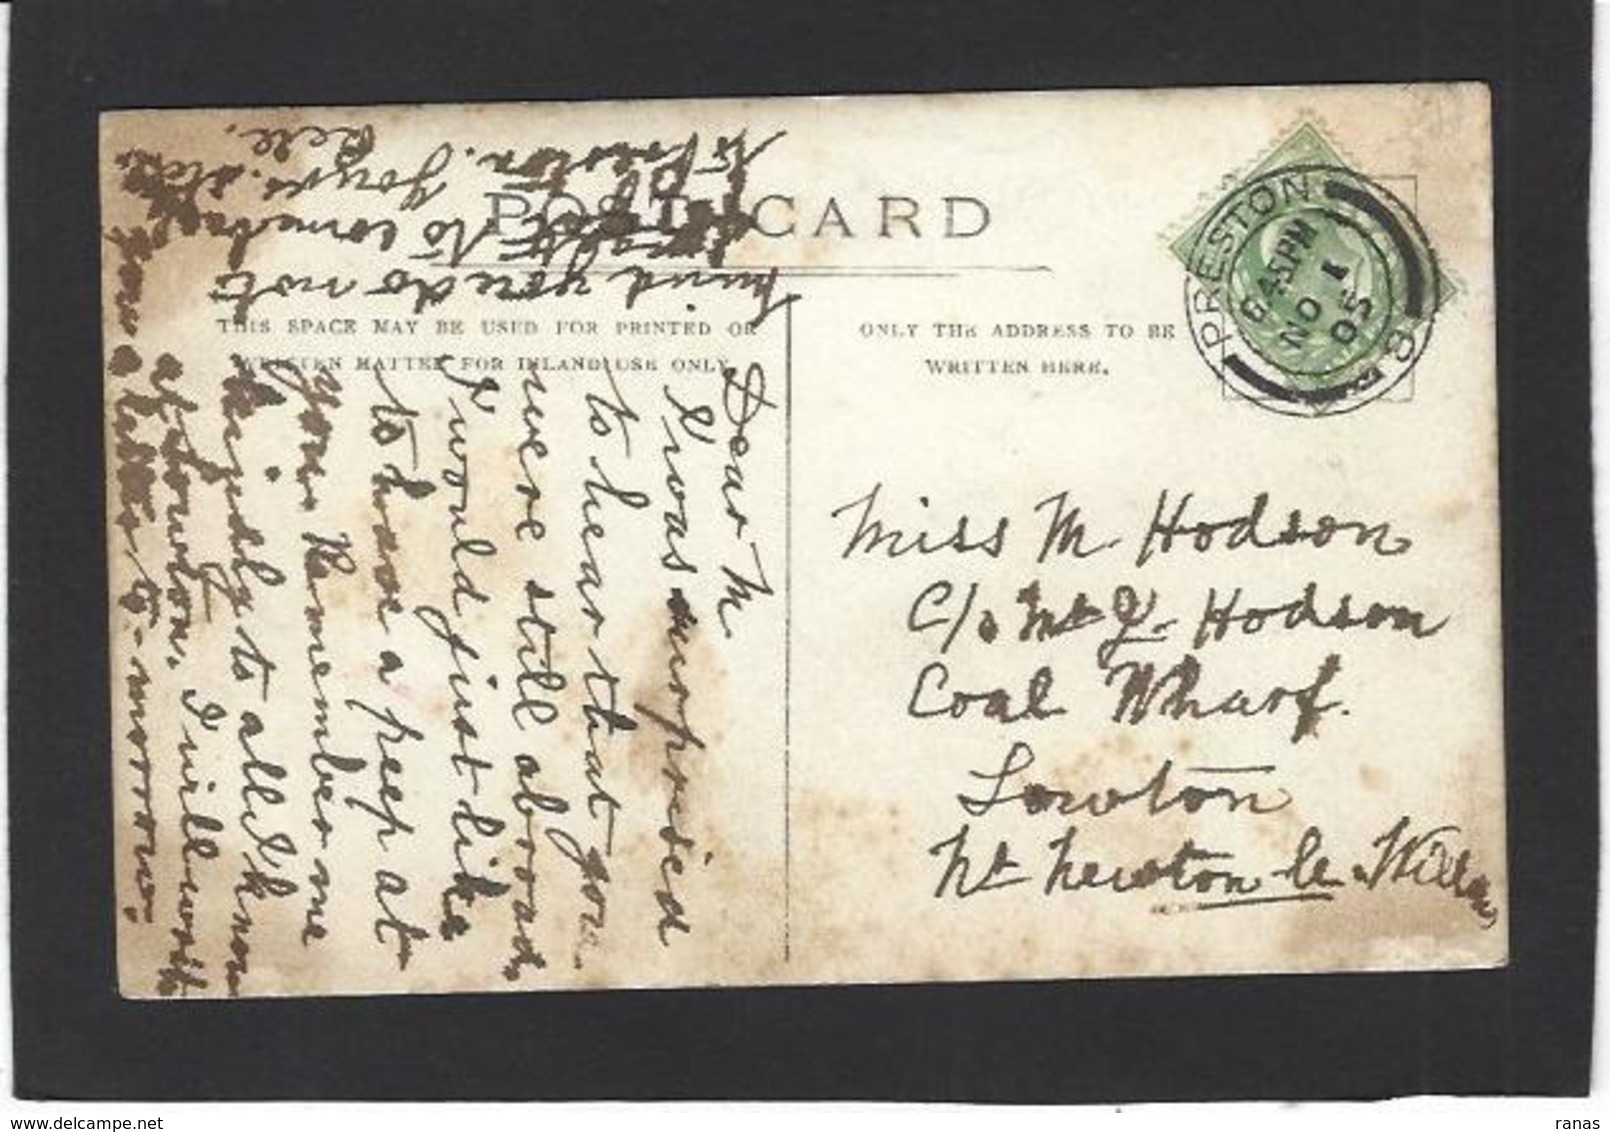 POST CARD
THIS SPACE MAY BE USED FOR PRINTED OR
WRITTEN MATTER FOR INLAND USE ONLY.
ONLY THE ADDRESS TO BE
WRITTEN HERE.
PRESTON
6 45 PM
NO 1
05
Miss M. Hodson
C/o Mr J. Hodson
Coal Wharf.
Lowton
Nt Newton-le-Willows
Dear M
I was surprised
to hear that you
were still abroad.
I would just like
to have a peep at
you. Remember me
kindly to all I know
at Lowton. I will write
you a letter to-morrow.
mind you do not
to come
to Preston. Yours
ranas